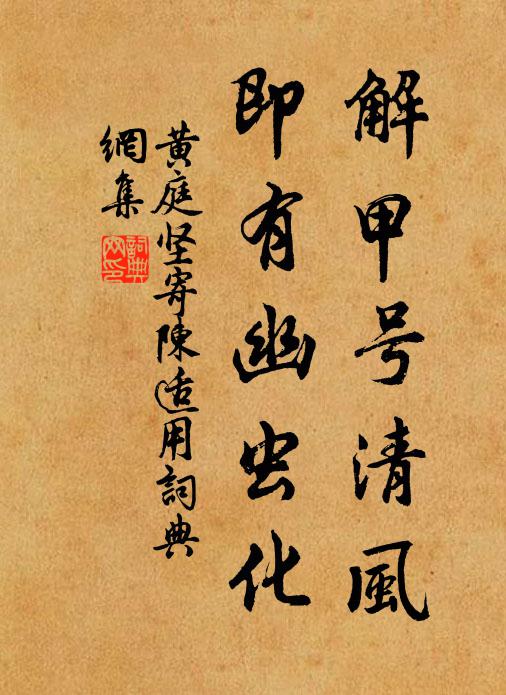 解甲号清風
即有幽虫化
黄庭坚寄陳适用詞典
網集
詞典
网印